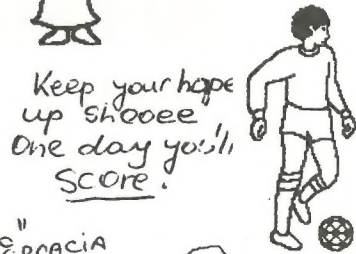 Keep your hope
up shooee
One day you'll
SCORE.
"